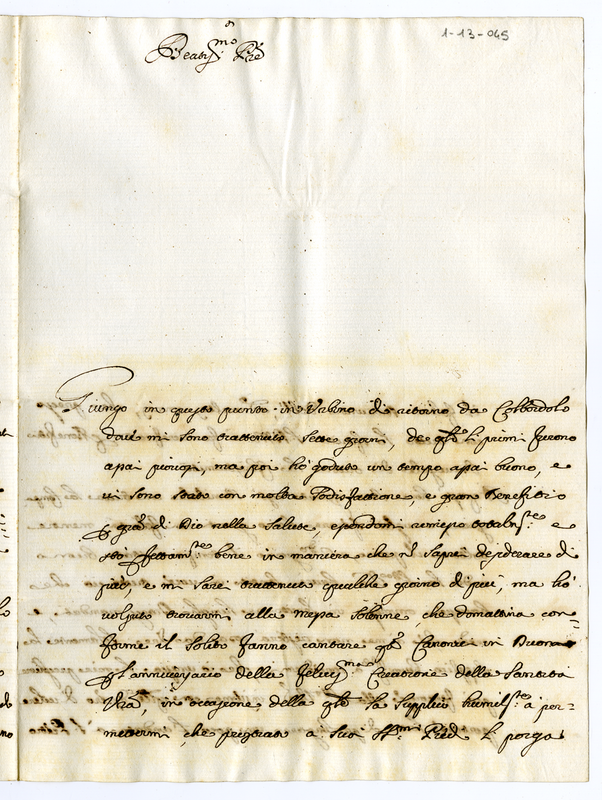 1-13-045
Beatiss.mo Pre
Giungo in questo punto in Urbino di ritorno da Colbordolo
dove mi sono trattenuto sette giorni, de q.li li primi furono
assai piovosi, ma poi hò goduto un tempo assai buono, e
vi sono stato con molta sodisfattione, e gran benefitio
p gra di Dio nella salute, essendomi rimesso totalm.te e
sto perfettam.te bene in maniera che nō saprei desiderare di
più, e mi sarei trattenuto qualche giorno di più, ma hò
voluto trovarmi alla messa solenne, che domattina con=
forme il solito fanno cantare q.ti Canonici in Duomo
p l'anniversario della feliciss.ma Creatione della Santità
Vra, in occasione della q.le la supplico humilss.te à per=
mettermi, che prostrato a suoi SS.mi Piedi le porga